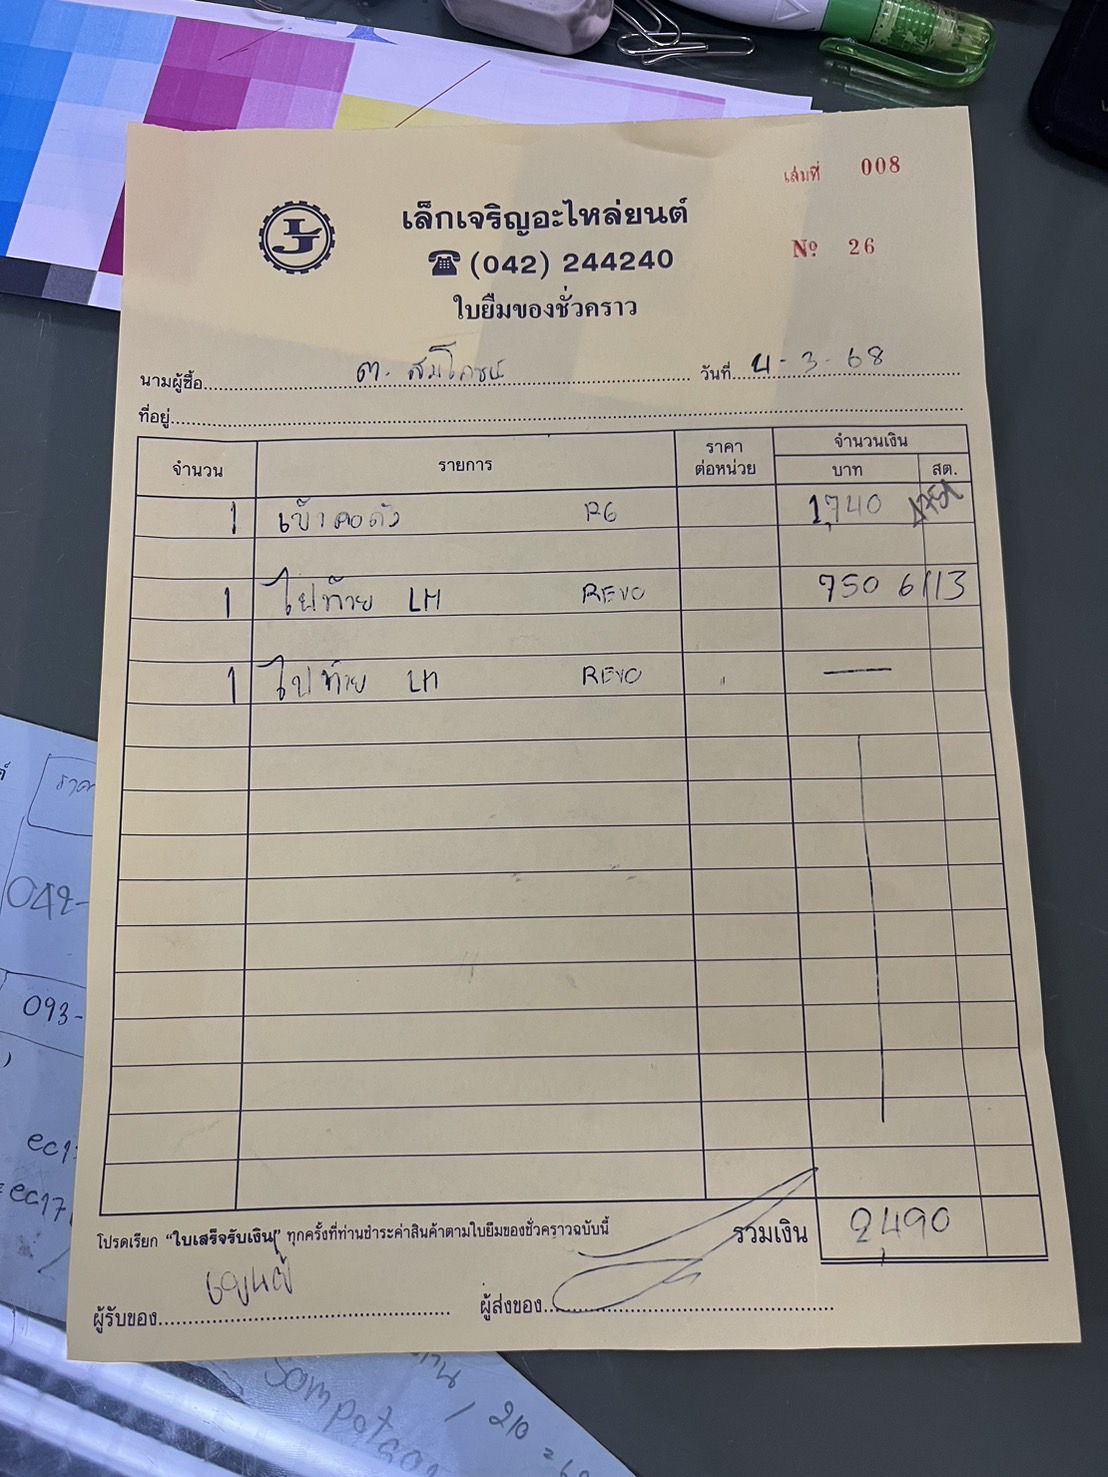 เล่มที่ 008
เล็กเจริญอะไหล่ยนต์
(042) 244240
Nº 26
ใบยืมของชั่วคราว
นามผู้ซื้อ ต. สมโภชน์ วันที่ 4-3-68
ที่อยู่
จำนวน รายการ ราคาต่อหน่วย จำนวนเงิน บาท สต.
1 R6 1,740
1 ไฟท้าย LH REVO 750 6113
1 ไฟท้าย LH REVO —
โปรดเรียก "ใบเสร็จรับเงิน" ทุกครั้งที่ท่านชำระค่าสินค้าตามใบยืมของชั่วคราวฉบับนี้ รวมเงิน 2,490
ผู้รับของ ผู้ส่งของ
042-
093-
ec17